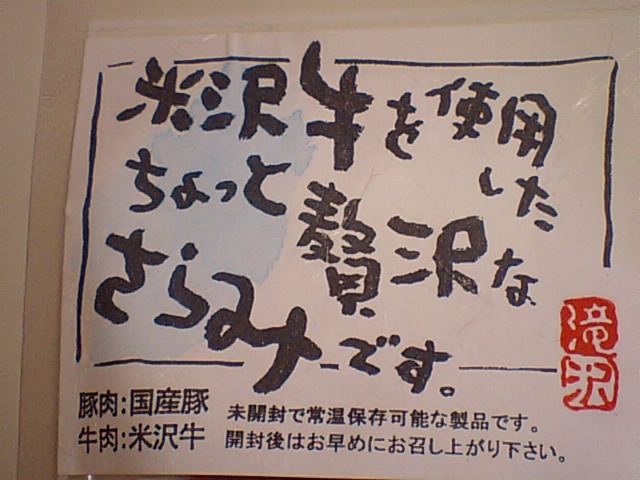 米沢牛を使用した
ちょっと贅沢な
さらみです。
滝沢
豚肉:国産豚
牛肉:米沢牛
未開封で常温保存可能な製品です。
開封後はお早めにお召し上がり下さい。